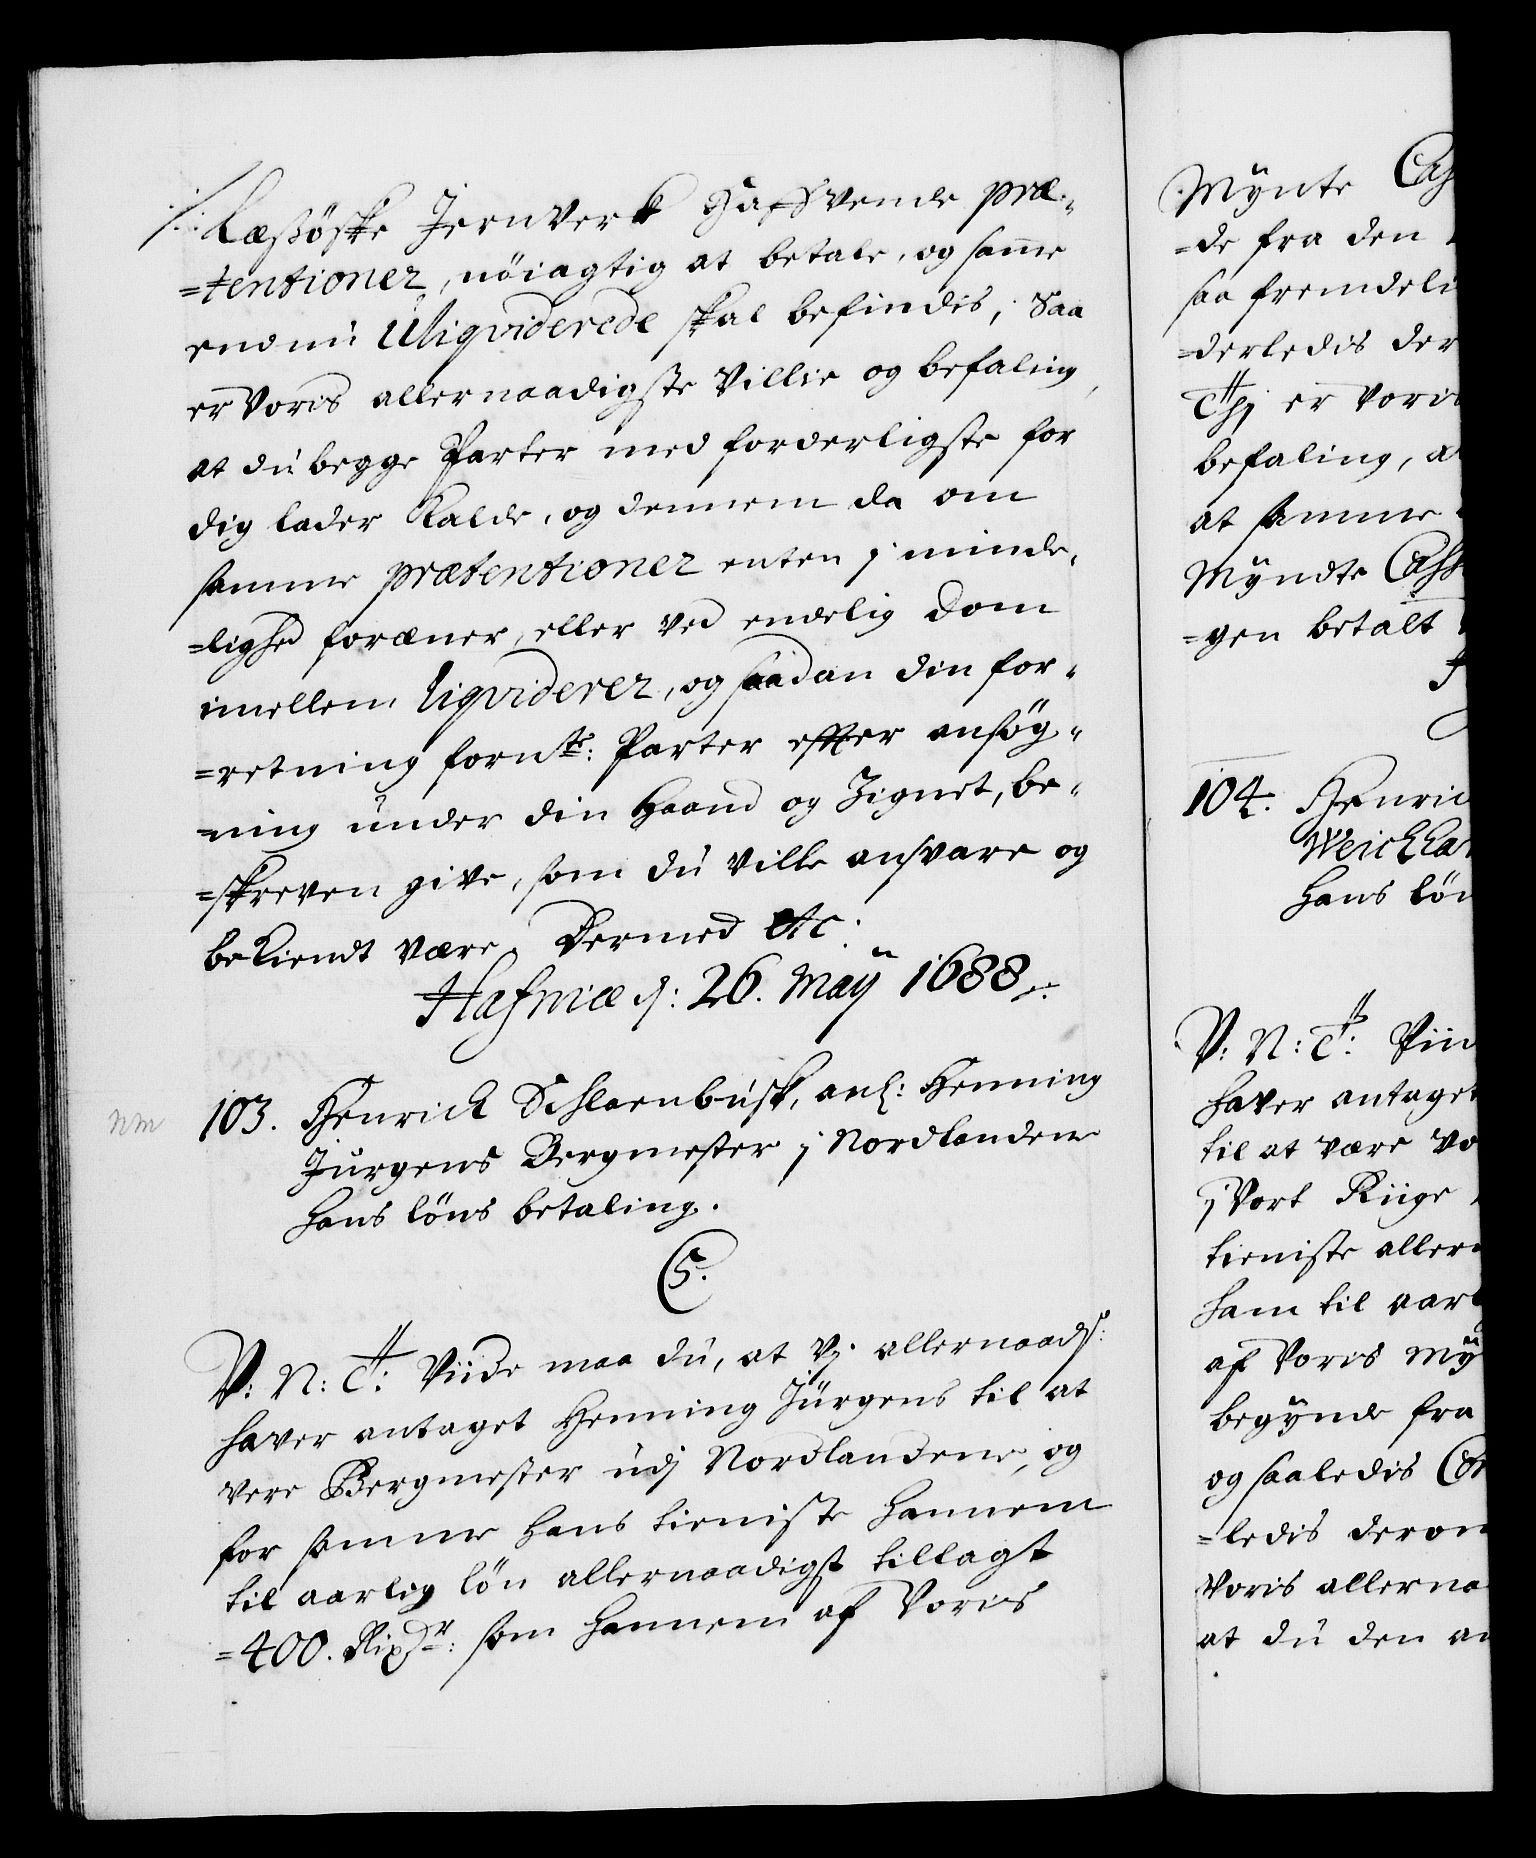 ./. Læssøske Jernverk Haffvende præ-
=tentioner, nöiagtig at betale, og same
endnu Uliqviderede skal befindis, Saa
er Voris allernaadigste Villie og befaling,
at du begge Parter med forderligste for
dig lader Kalde, og dennem da om
samme prætentioner enten j minde-
=lighed foræner, eller ved endelig Dom
imellem liqviderer, og saadan din for-
=retning fornte: Parter effter ansøg-
=ning under din Haand og Zignet, be-
=skreven give, som du ville ansvare og
bekiendt være, Dermed etc:
Hafniæ d: 26. Maÿ 1688 ./.
nm
103. Henrick Schlaenbusk, anl: Henning
Jürgens Bergmester j Nordlandene
hans löns betaling.
C5.
V: N: Ctt: Viide maa du, at Vj allernaadst:
haver antaget Henning Jürgens til at
vere Bergmester udj Nordlandene, og
for samme hans tieniste hannem
til aarlig lön allernaadigst tillagt
=400. Rixdr: som hannem af Voris
Mynte Cas
=de fra den
saa fremdeli
=derledis der
Thj er Voris
befaling, a
at samme
Myndte Cass
=gen betalt
104. Henric
Weichhar
hans lön
V: N: Ctt: Vii
haver antaget
til at være Vo
j Vort Riige
tieniste aller
ham til aarl
af Voris Mÿ
begynde fra
og saaledis Co
=ledis derom
Voris allerna
at du den an